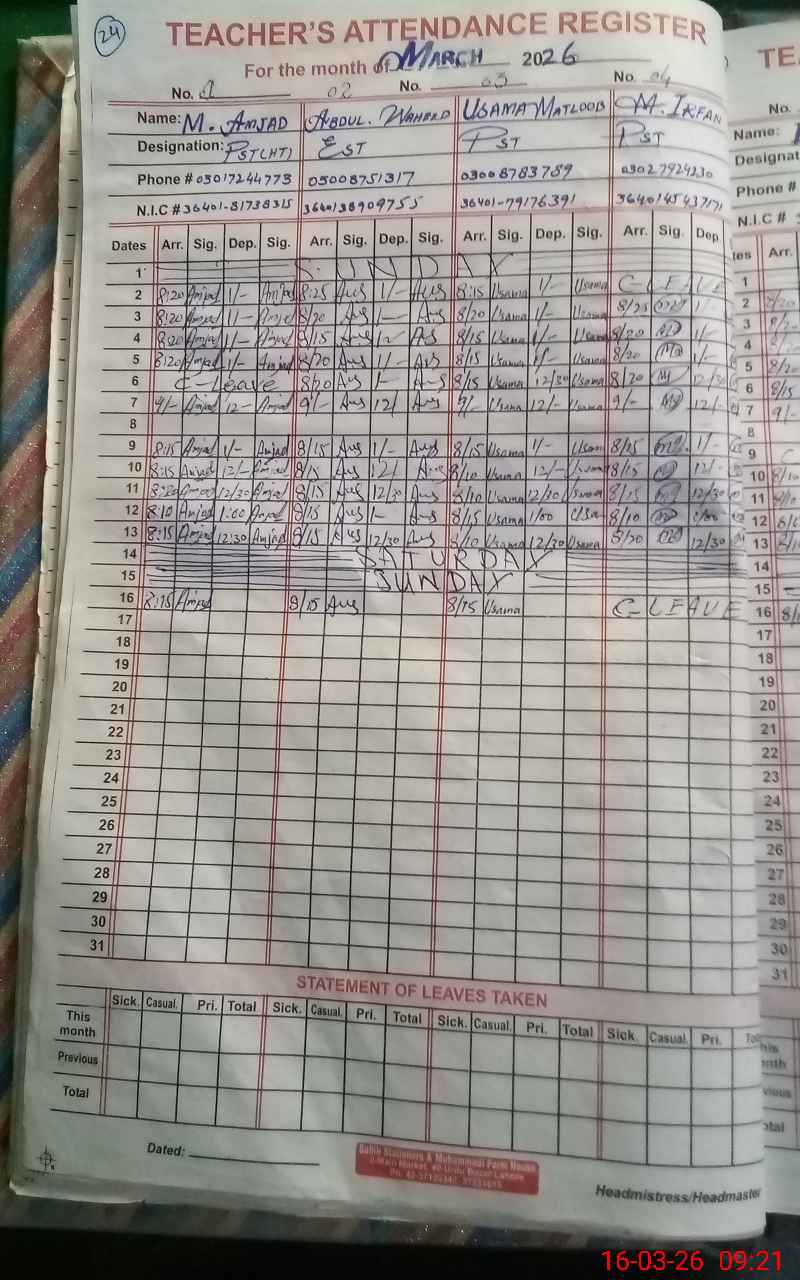 24
TEACHER'S ATTENDANCE REGISTER
For the month of MARCH 2026
No. 1 02 No. 03 No. 04
Name: M. AMJAD ABDUL. WAHEED USAMA MATLOOB M. IRFAN
Designation: PST(HT) EST PST PST
Phone # 03017244773 03008751317 03008783789 03027924230
N.I.C # 36401-81738315 3640138909755 36401-79176391 3640145437171
Dates Arr. Sig. Dep. Sig. Arr. Sig. Dep. Sig. Arr. Sig. Dep. Sig. Arr. Sig. Dep.
1 SUNDAY
2 8:20 Amjad 1/- Amjad 8:25 1/- 8:15 Usama 1/- Usama C-LEAVE
3 8:20 Amjad 1/- Amjad 8/20 1/- 8/20 Usama 1/- Usama 8/25 1/-
4 8:20 Amjad 1/- Amjad 8/15 8/15 Usama 1/- Usama 8/20 1/-
5 8:20 Amjad 1/- Amjad 8/20 1/- 8/15 Usama 1/- Usama 8/20 1/-
6 C-Leave 8/20 1- 8/15 Usama 12/30 Usama 8/20 12/30
7 9/- Amjad 12- Amjad 9/- 12/ 9/- Usama 12/- Usama 9/- 12/-
8
9 8:15 Amjad 1/- Amjad 8/15 1/- 8/15 Usama 1/- Usama 8/15 1/-
10 8:15 Amjad 12/- Amjad 8/15 12/ 8/10 Usama 12/- Usama 8/15 12/-
11 8:20 Amjad 12/30 Amjad 8/15 12/30 8/10 Usama 12/30 Usama 8/15 12/30
12 8:10 Amjad 1:00 Amjad 8/15 1- 8/15 Usama 1/00 Usama 8/10 1/00
13 8:15 Amjad 12:30 Amjad 8/15 12/30 8/10 Usama 12/30 Usama 8/20 12/30
14 SATURDAY
15 SUNDAY
16 8:15 Amjad 8/15 8/15 Usama C-LEAVE
17
18
19
20
21
22
23
24
25
26
27
28
29
30
31
STATEMENT OF LEAVES TAKEN
Sick. Casual. Pri. Total Sick. Casual. Pri. Total Sick. Casual. Pri. Total Sick. Casual. Pri.
This month
Previous
Total
Dated:
Headmistress/Headmaster
16-03-26 09:21